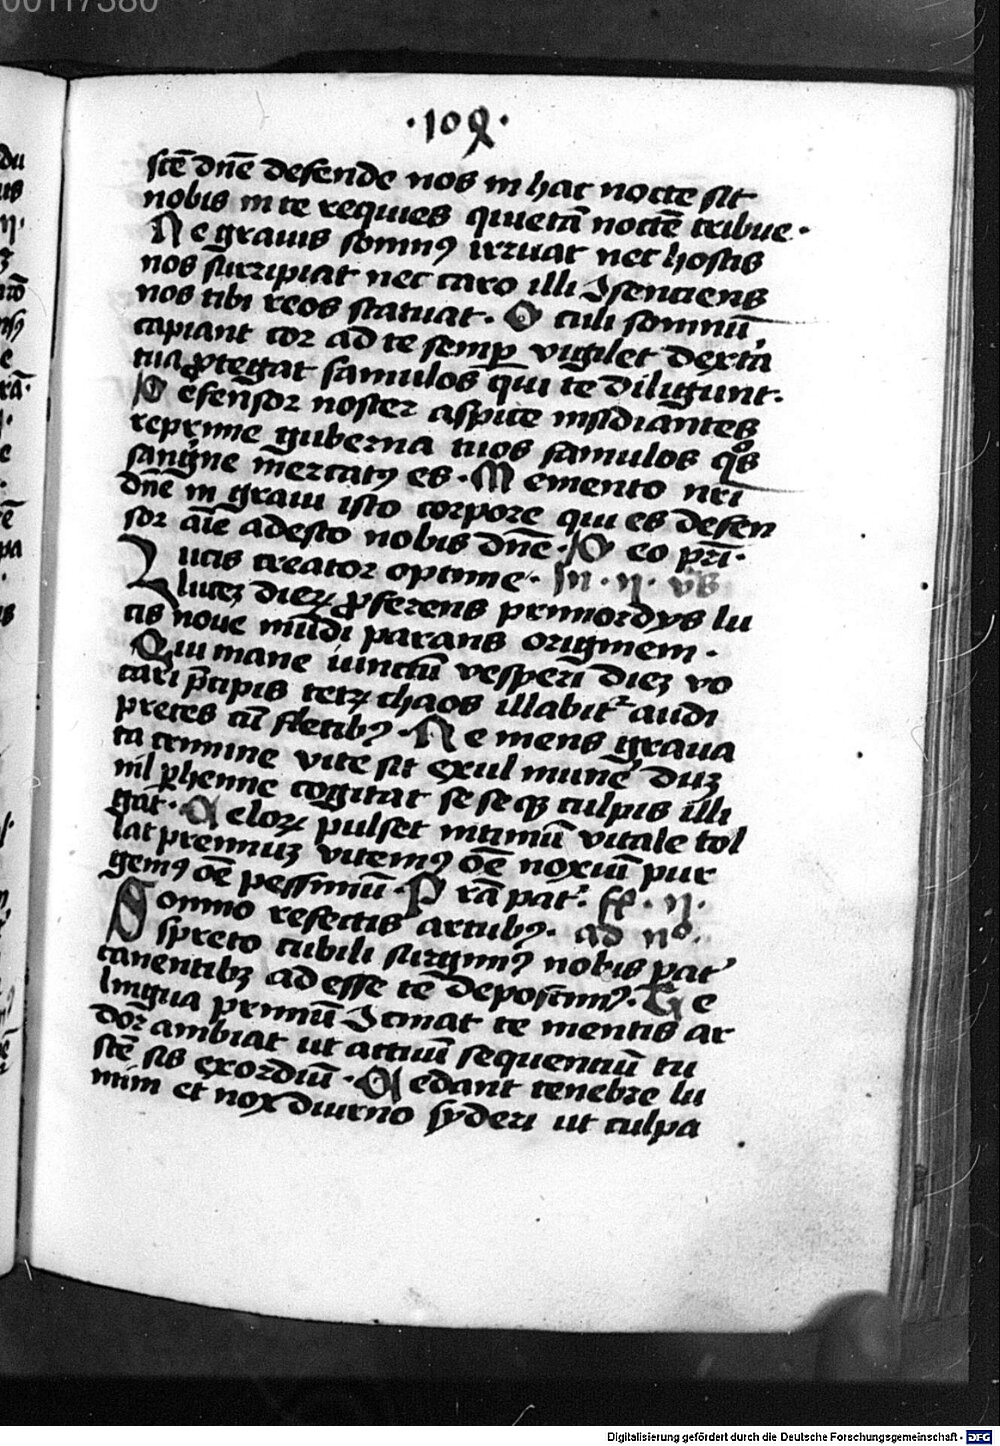 00117380
·109·
scē dnē defende nos in hac nocte sit
nobis in te requies quietā noctē tribue·
Ne grauis somnꝰ irruat nec hostis
nos surripiat nec caro illi ꝯsenciens
nos tibi reos statuat· Oculi somnū
capiant cor ad te semꝑ vigilet dextā
tua ꝓtegat famulos qui te diligunt·
Defensor noster aspice insidiantes
reprime guberna tuos famulos qͦs
sangͥne mercatꝰ es· Memento nr̄i
dnē in graui isto corpore qui es defen
sor aīe adesto nobis dnē· Deo pr̄i·
Lucis creator optime· In · ij · vͬs
lucez dieꝝ ꝓferens primordys lu
cis noue mūdi parans originem·
Qui mane iunctū vesperi diez vo
cari p̄cipis tetꝝ chaos illabitᷣ audi
preces cū fletibꝰ· Ne mens graua
ta crimine vite sit exul munē duz
nil ꝑhenne cogitat seseqꝫ culpis illi
gat· Celoꝝ pulset intimū vitale tol
lat premiuz vitemꝰ oē noxiū pur
gemꝰ oē pessimū· Prā pat᷒· ff · ij ·
Somno refectis artubꝰ· ad nͦ·
spreto cubili surgimꝰ nobis pat᷒
canentibꝫ ad esse tē deposcimꝰ· Te
lingua primū ꝯcinat te mentis ar
dor ambiat ut actuū sequentiū tu
scē sis exordiū· Cedant tenebre lu
mini et nox diurno syderi ut culpa
Digitalisierung gefördert durch die Deutsche Forschungsgemeinschaft - DFG